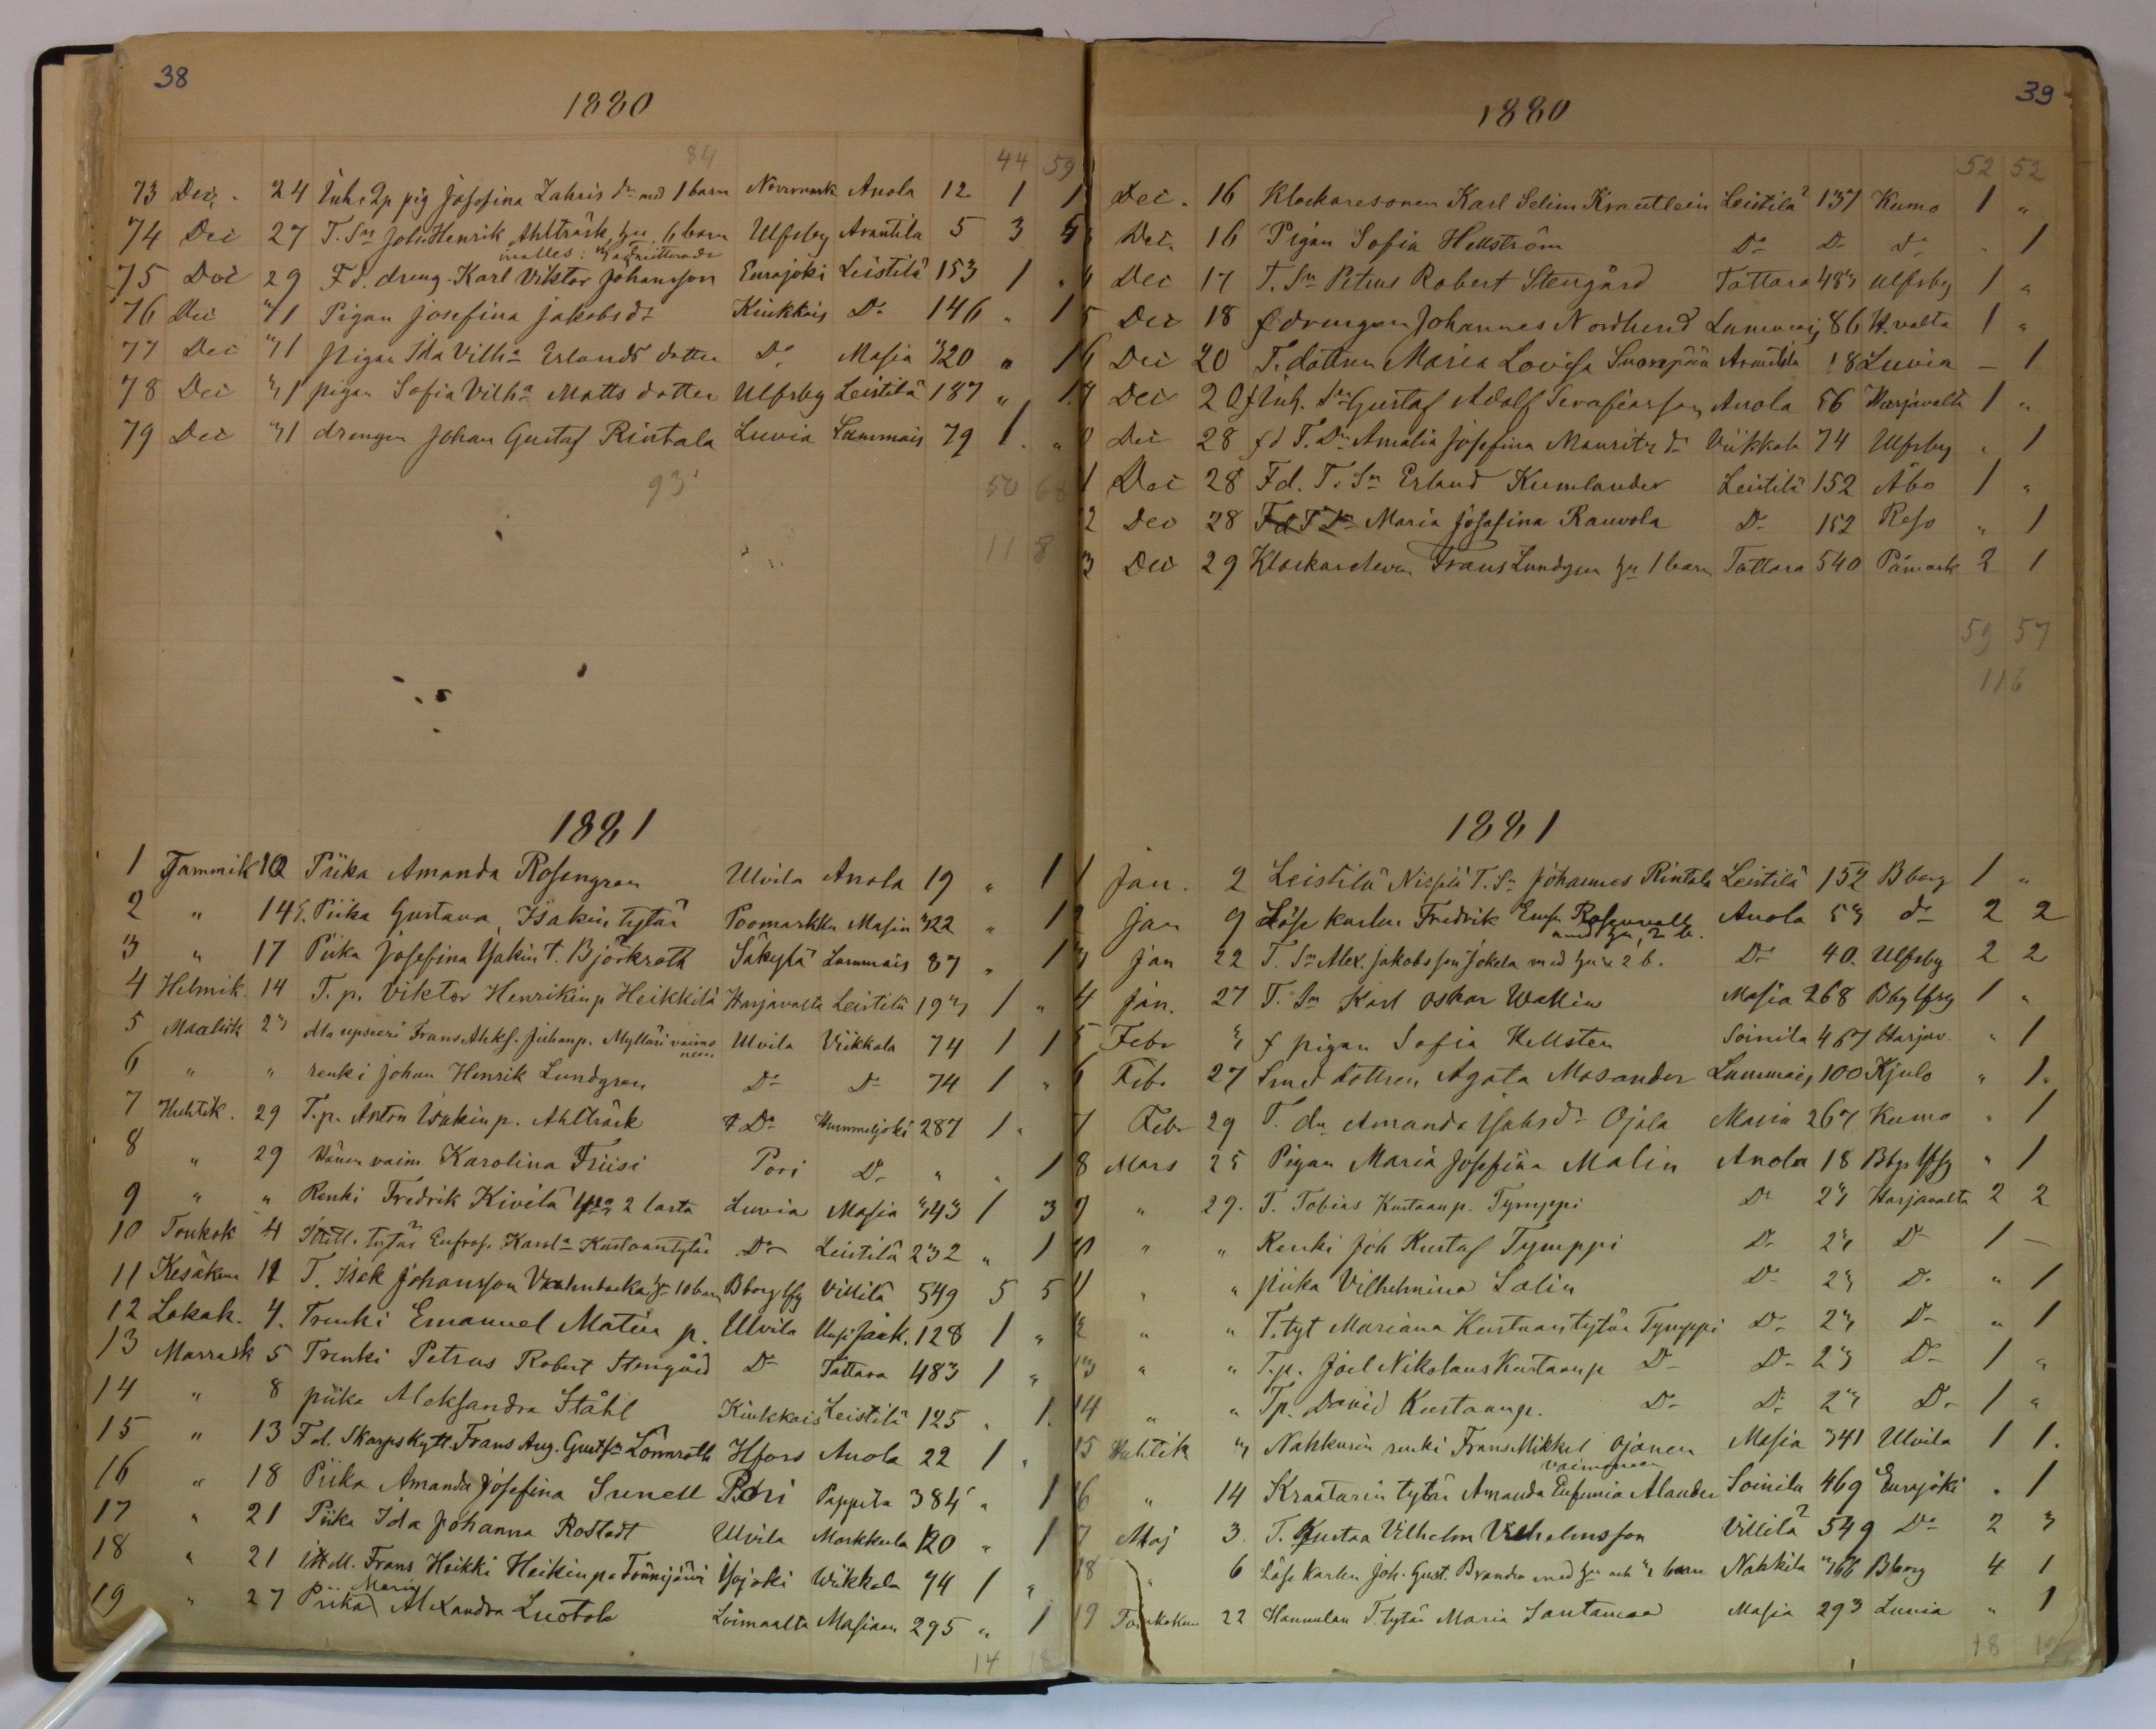 38
1880
84 44 59
73 Dec. 24 Inh. 2p pig Josefina Zahris dr med 1 barn Norrmark Anola 12 1 1
74 Dec 27 T. Sn Joh. Henrik Ahlträsk hu 6 barn Ulfsby Arantila 5 3 5
75 Dec 29 Fd. dreng. Karl Viktor Johansson Eurajoki Leistilä 153 1 "
76 Dec 31 Pigan Josefina Jakobsdr Kiukkais Do 146 " 1
77 Dec 31 pigan Ida Vilha Erlands dotter Do Masia 320 " 1
78 Dec 31 pigan Sofia Vilha Matts dotter Ulfsby Leistilä 187 " 1
79 Dec 31 drengen Johan Gustaf Rintala Luvia Lammais 79 1 "
93 50 68
11 8
1881
1 Tammik 10 Piika Amanda Rosengren Ulvila Anola 19 " 1
2 " 14 E. Piika Gustava Isakin tytär Poomarkku Masia 322 " 1
3 " 17 Piika Josefina Isakin t. Björkroth Säkylä Lammais 87 " 1
4 Helmik. 14 T. p. Viktor Henrikin p Heikkilä Harjavalta Leistilä 193 1 "
5 Maalisk 23 Ala upseeri Frans Aleks. Juhanp. Mylläri vaimo neen Ulvila Viikkala 74 1 1
6 " " renki Johan Henrik Lundgren Do Do 74 1 "
7 Huhtik. 29 T. p. Anton Isakin p. Ahlträsk Do Hummeljoki 287 1 "
8 " 29 Hänen vaim Karolina Friisi Pori Do " " 1
9 " " Renki Fredrik Kivelä 2 lasta Luvia Masia 343 1 3
10 Toukok 4 Itell. tytär Eufros. Karola Kustaantytär Do Leistilä 232 " 1
11 Kesäkuu 11 T. Isak Johansson hu 10 barn Bborg lfg Villilä 549 5 5
12 Lokak. 4. Trenki Emanuel Matin p. Ulvila 128 1 "
13 Marrask 5 Trenki Petrus Robert Stengård Do Tattara 483 1 "
14 " 8 piika Aleksandra Ståhl Kiukkais Leistilä 125 " 1.
15 " 13 Fd. Skarpskytt. Frans Aug. Gustfsn Lönnroth Hfors Anola 22 1 "
16 " 18 Piika Amanda Josefina Sunell Pori Pappila 384 " 1
17 " 21 Piika Ida Johanna Rostedt Ulvila Markkula 120 " 1
18 " 21 itell. Frans Heikki Heikinpa Tönnijärvi Isojoki Wiikkala 74 1 "
19 " 27 Piika Maria Alexandra Luotola Loimaalta Masiaan 295 " 1
14 18
39
1880
52 52
Dec. 16 Klockaresonen Karl Selim Krautlein Leistilä 137 Kumo 1 "
Dec. 16 Pigan Sofia Hellström Do Do do " 1
Dec 17 T. Sn Petrus Robert Stengård Tattara 483 Ulfsby 1 "
5 Dec 18 f drengen Johannes Nordlund Lammais 86 H.valta 1 "
6 Dec 20 T. dottren Maria Lovisa Suompää Arantila 18 Luvia – 1
7 Dec 20 f Inh. Sn Gustaf Adolf Serafiasson Anola 56 Harjavalta 1 "
Dec 28 fd T. Dr Amalia Josefina Maurits dr Viikkala 74 Ulfsby " 1
1 Dec 28 Fd. T. Sn Erland Kumlander Leistilä 152 Åbo 1 "
2 Dec 28 Fd T Dr Maria Josefina Rauvola Do 152 Reso " 1
3 Dec 29 Klockareleven Frans Lundgren hu 1 barn Tattara 540 Påmark 2 1
59 57
116
1881
1 Jan. 2 Leistilä T. Sn Johannes Rintala Leistilä 152 Bborg 1 "
2 Jan 9 Löse karlen Fredrik Rosenvall med hu, 2 b. Anola 53 do 2 2
3 Jan 22 T. Sn Alex. Jakobsson Jokela med hu 2 b. Do 40. Ulfsby 2 2
4 Jan. 27 T. Sn Karl Oskar Wallin Masia 268 Bbg lfsg 1 "
5 Febr 3 f pigan Sofia Hellsten Soinila 467 Harjav. " 1
6 Feb. 27 Smed dottren Agata Masander Lammais 100 Kjulo " 1.
7 Febr 29 T. dr Amanda Isaksdr Ojala Masia 267 Kumo " 1
8 Mars 25 Pigan Maria Josefina Malin Anola 18 Bbgs lfsg " 1
9 " 29. T. Tobias Kustaan p. Tymppi Do 23 Harjavalta 2 2
10 " " Renki Joh Kustaf Tymppi Do 23 Do 1 –
11 " " piika Vilhelmina Salin Do 23 Do " 1
12 " " T. tyt Mariana Kustaantytär Tymppi Do 23 Do " 1
13 " " T.p. Joel Nikolaus Kustaanp Do Do 23 Do 1 "
14 " " Tp. David Kustaanp. Do Do 23 Do 1 "
15 Huhtik 3 Nahkurin renki Frans Mikkel Ojanen vaimoneen Masia 341 Ulvila 1 1.
16 " 14 Kraatarin tytär Amanda Eufemia Alander Soinila 469 Eurajoki " 1
17 Maj 3. T. Kustaa Vilhelm Vilhelmsson Villilä 549 Do 2 3
18 " 6 Löse karlen Joh. Gust. Brander med hu och 3 barn Nahkila 366 Bborg 4 1
19 Toukokuu 22 Hannulan T. tytär Maria Santamaa Masia 293 Luvia " 1
18 19